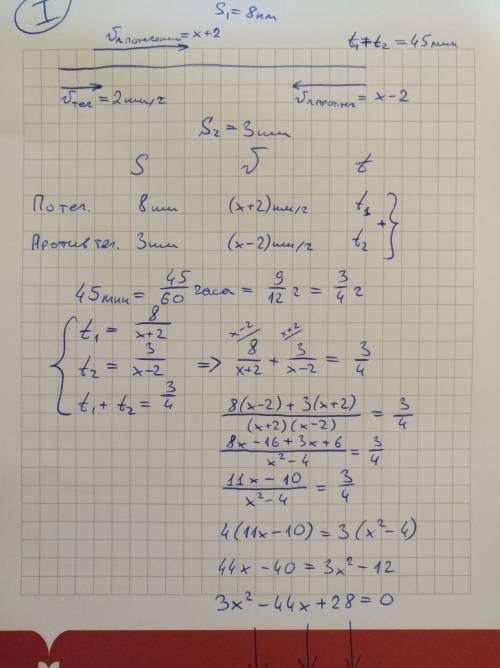 I
S₁ = 8 км
υл по течению = x+2
t₁ + t₂ = 45 мин
υтеч = 2 км/ч
υл против = x − 2
S₂ = 3 км
S υ t
По теч. 8 км (x+2) км/ч t₁
+
Против теч. 3 км (x−2) км/ч t₂
45 мин = 45/60 часа = 9/12 ч = 3/4 ч
x−2 x+2
t₁ = 8/(x+2)
t₂ = 3/(x−2) => 8/(x+2) + 3/(x−2) = 3/4
t₁ + t₂ = 3/4
(8(x−2) + 3(x+2))/((x+2)(x−2)) = 3/4
(8x − 16 + 3x + 6)/(x² − 4) = 3/4
(11x − 10)/(x² − 4) = 3/4
4(11x − 10) = 3(x² − 4)
44x − 40 = 3x² − 12
3x² − 44x + 28 = 0